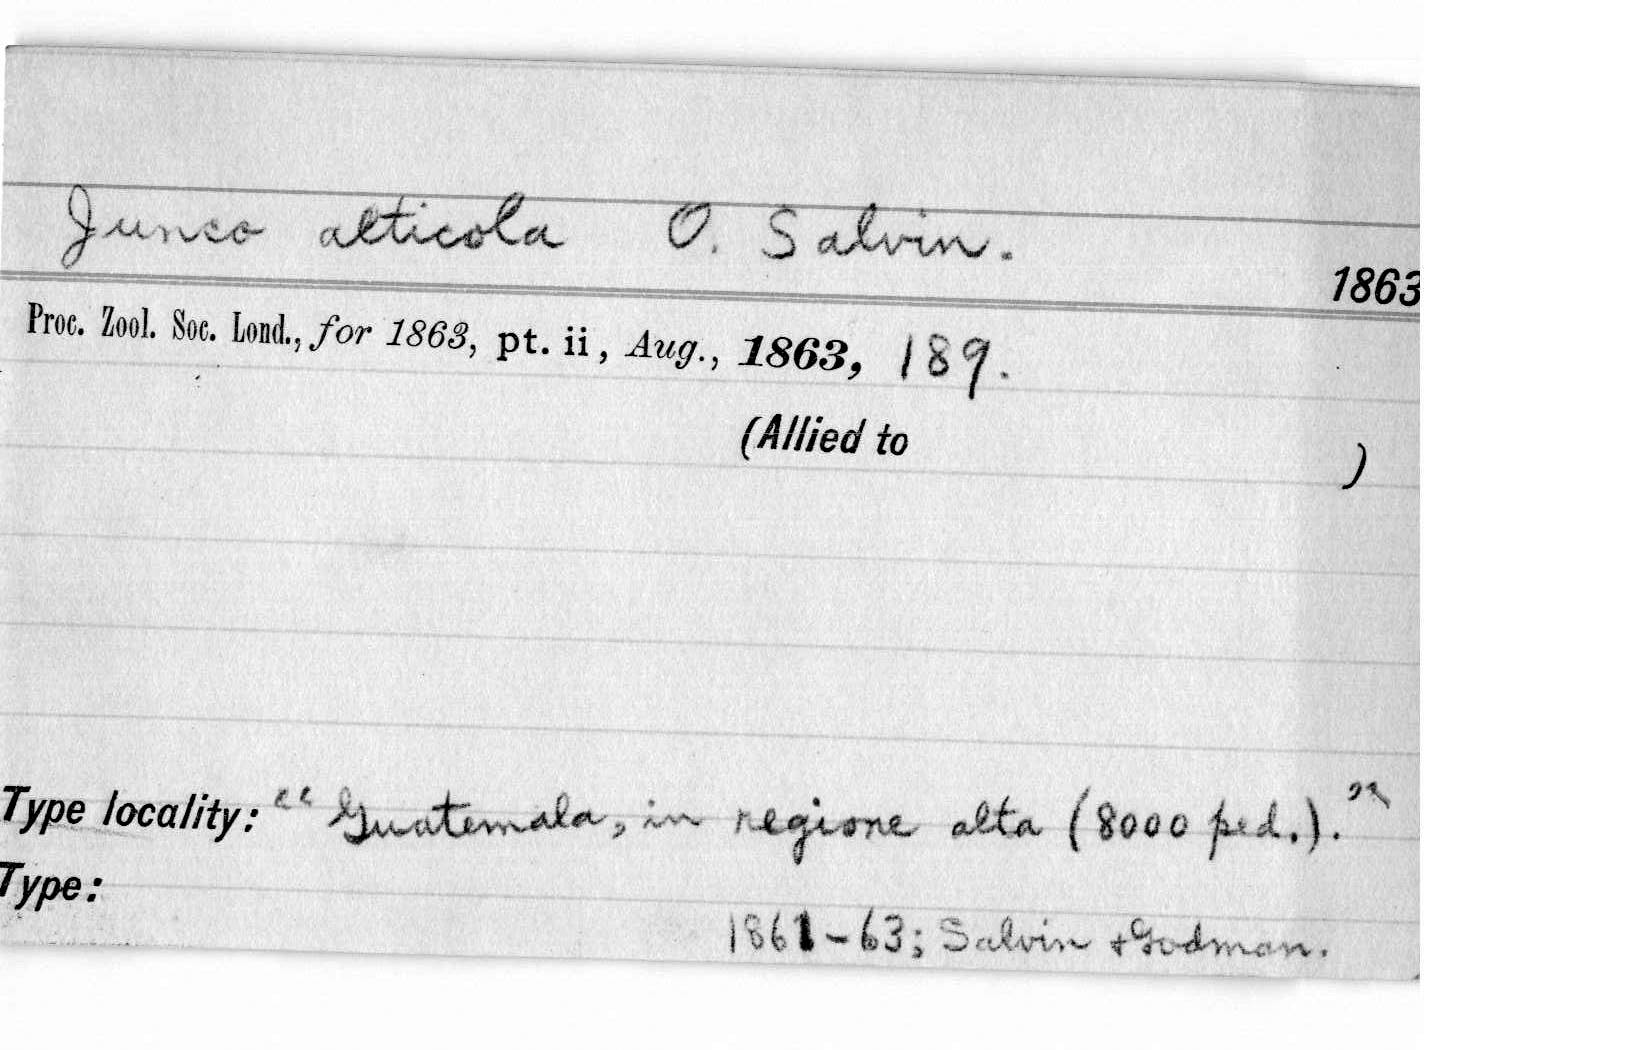 Junco alticola O. Salvin.
1863
Proc. Zool. Soc. Lond., for 1863, pt. ii, Aug., 1863, 189.
(Allied to )
Type locality: "Guatemala, in regione alta (8000 ped.)."
Type:
1861-63; Salvin + Godman.